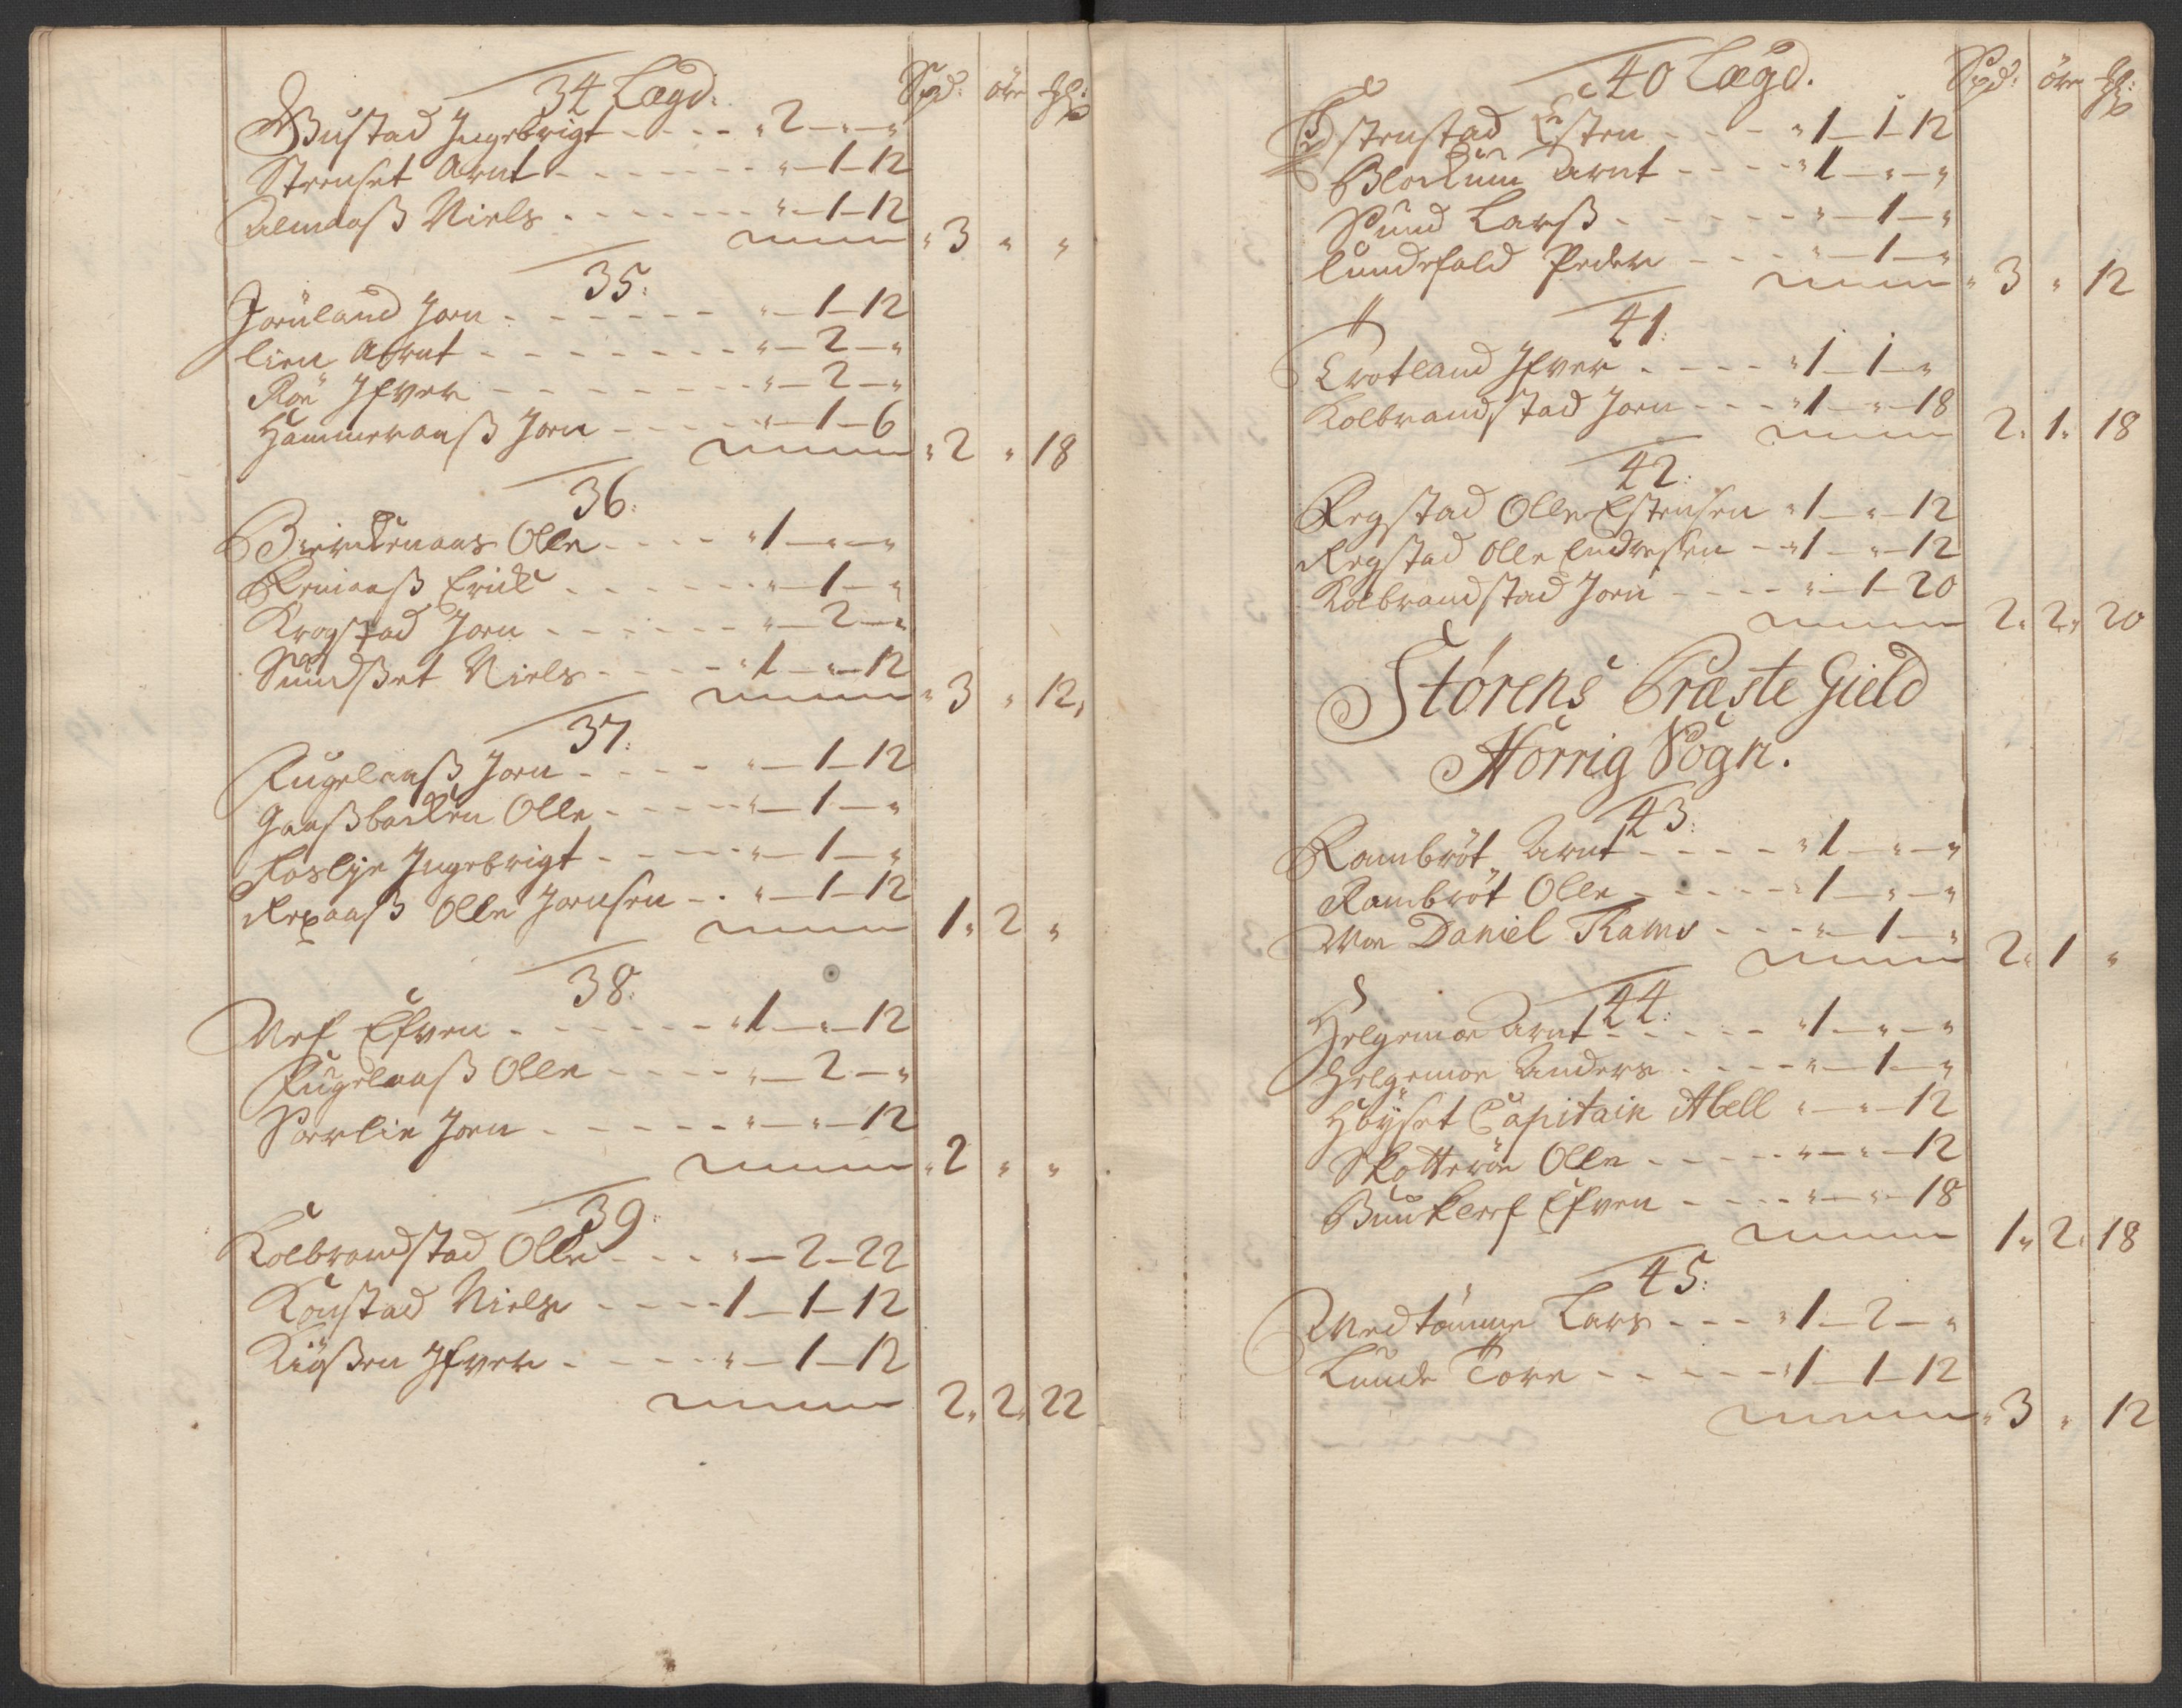 34 Lægd. Spd: öre ₰:
Bustad Ingebrigt - - - - „ 2 — „ — „
Strenset Arnt - - - - - - - „ — 1 — 12
Almaaß Niels - - - - - - - „ — 1 — 12
„ 3 „ „
35:
Joruland Joen - - - - - - „ — 1 — 12
Lien Arnt - - - - - - - - „ — 2 — „
Röe Ifver - - - - - - - - „ — 2 — „
Hammeraaß Joen - - - - - „ — 1 — 6
„ 2 „ 18
36:
Bierckenaas Olle - - - - „ 1 — „ — „
Remaaß Erick - - - - - - „ — 1 — „
Krogstad Joen - - - - - - „ — 2 — „
Sundßet Niels - - - - „ 1 — „ — 12
„ 3 „ 12,
37:
Fugelaaß Joen - - - - „ — 1 — 12
Gaaßbacken Olle - - - - - „ — 1 — „
Foslye Ingebrigt - - - - - „ — 1 — „
Repaaß Olle Joensen - - „ — 1 — 12
1 „ 2 „
38:
Ness Efven - - - - - - „ 1 — „ — 12
Fugelaaß Olle - - - - „ — 2 — „
Sørlie Joen - - - - - - „ — „ — 12
„ 2 „ „
39:
Kolbrandstad Olle - - - „ — 2 — 22
Konstad Niels - - - - 1 — 1 — 12
Kiøßen Ifver - - - - - „ — 1 — 12
2 „ 2 „ 22
40 Lægd. Spd: öre ₰:
Estenstad Esten - - - - „ 1 — 1 — 12
Blockum Arnt - - - - „ 1 — „ — „
Sund Larß - - - - - - „ — 1 — „
Lundefald Peder - - - „ — 1 — „
„ 3 „ 12
41:
Trotland Ifver - - - - „ 1 — 1 — „
Kolbrandstad Joen - - - „ 1 — „ — 18
2 „ 1 „ 18
42:
Regstad Olle Estensen „ 1 — „ — 12
Regstad Olle Endresen - - „ 1 — „ — 12
Kolbrandstad Joen - - - - „ — 1 — 20
2 „ 2 „ 20
Størens Præste Gield
Horrig Sogn.
43:
Rambröt Arnt - - - - - „ 1 — „ — „
Rambröt Olle - - - - - „ 1 — „ — „
Moe Daniel Rams - - - „ — 1 — „
2 „ 1 „
44:
Helgemoe Arnt - - - - - „ 1 — „ — „
Helgemoe Anders - - - - „ — 1 — „
Höyset Capitain Abell „ — „ — 12
Skotteröe Olle - - - - - „ — „ — 12
Efven - - - - „ — „ — 18
1 „ 2 „ 18
45:
Medtömme Lars - - - „ 1 — 2 — „
Lunde Tore - - - - - „ 1 — 1 — 12
„ 3 „ 12